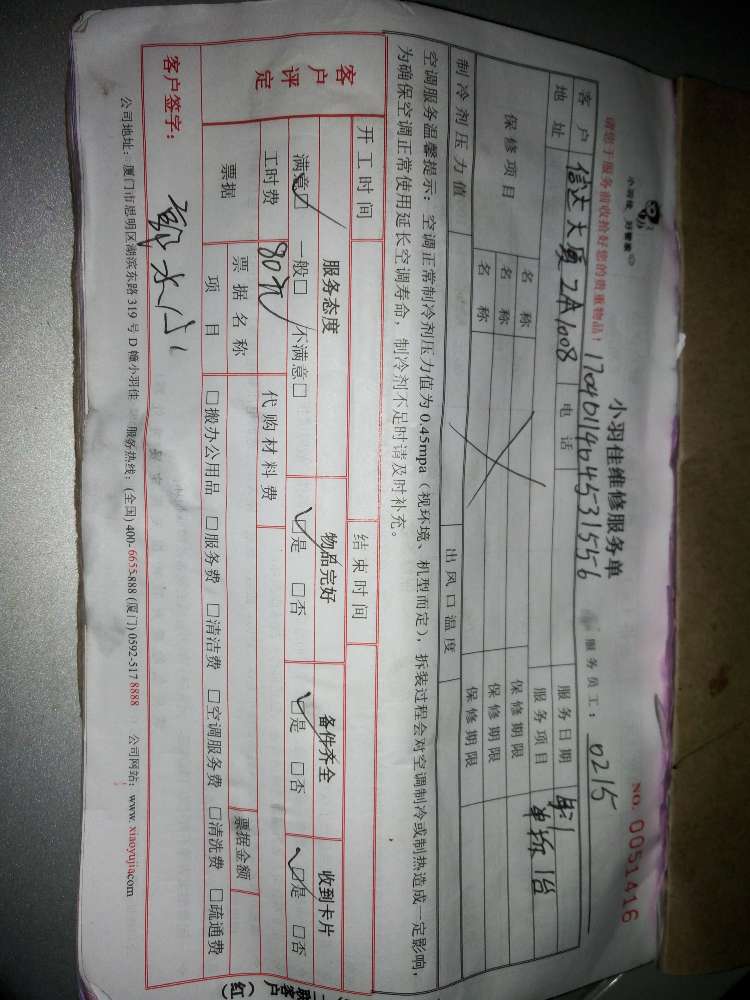 小羽佳 万家家
小羽佳维修服务单
NO. 0051416
请您于服务前收拾好您的贵重物品!
1704011404531556
服务员工: 0215
客户
地址
信达大厦2A1008
电话
服务日期
服务项目
单拆1台
保修项目
名称
保修期限
名称
保修期限
名称
保修期限
制冷剂压力值
出风口温度
空调服务温馨提示: 空调正常制冷剂压力值为0.45mpa (视环境、机型而定), 拆装过程会对空调制冷或制热造成一定影响,
为确保空调正常使用延长空调寿命, 制冷剂不足时请及时补充。
开工时间
结束时间
客户评定
服务态度
物品完好
备件齐全
收到卡片
满意□ 一般□ 不满意□
□是 □否
□是 □否
□是 □否
工时费
80元
代购材料费
票据
票据名称
票据金额
项目
□搬办公用品 □服务费 □清洁费 □空调服务费 □清洗费 □疏通费
客户签字:
公司地址: 厦门市思明区湖滨东路 319 号 D 幢小羽佳
服务热线: (全国) 400-6655-888 (厦门) 0592-517 8888
公司网站: www. xiaoyujia.com
客户
(红)